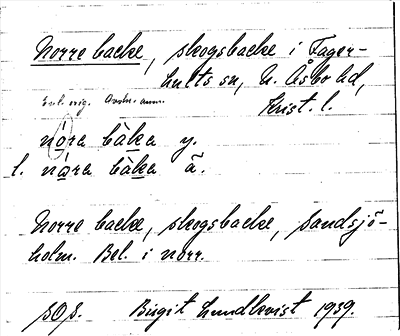 Norre backe, skogsbacke i Fager-
hults sn, N. Åsbo hd,
Krist. l.
Enl. orig. Ander. anm.
nóra bàka y.
l. nára bàka ä.
Norre backe, skogsbacke, Sandsjö-
holm. Bel. i norr.
SOS. Birgit Lundkvist 1939.